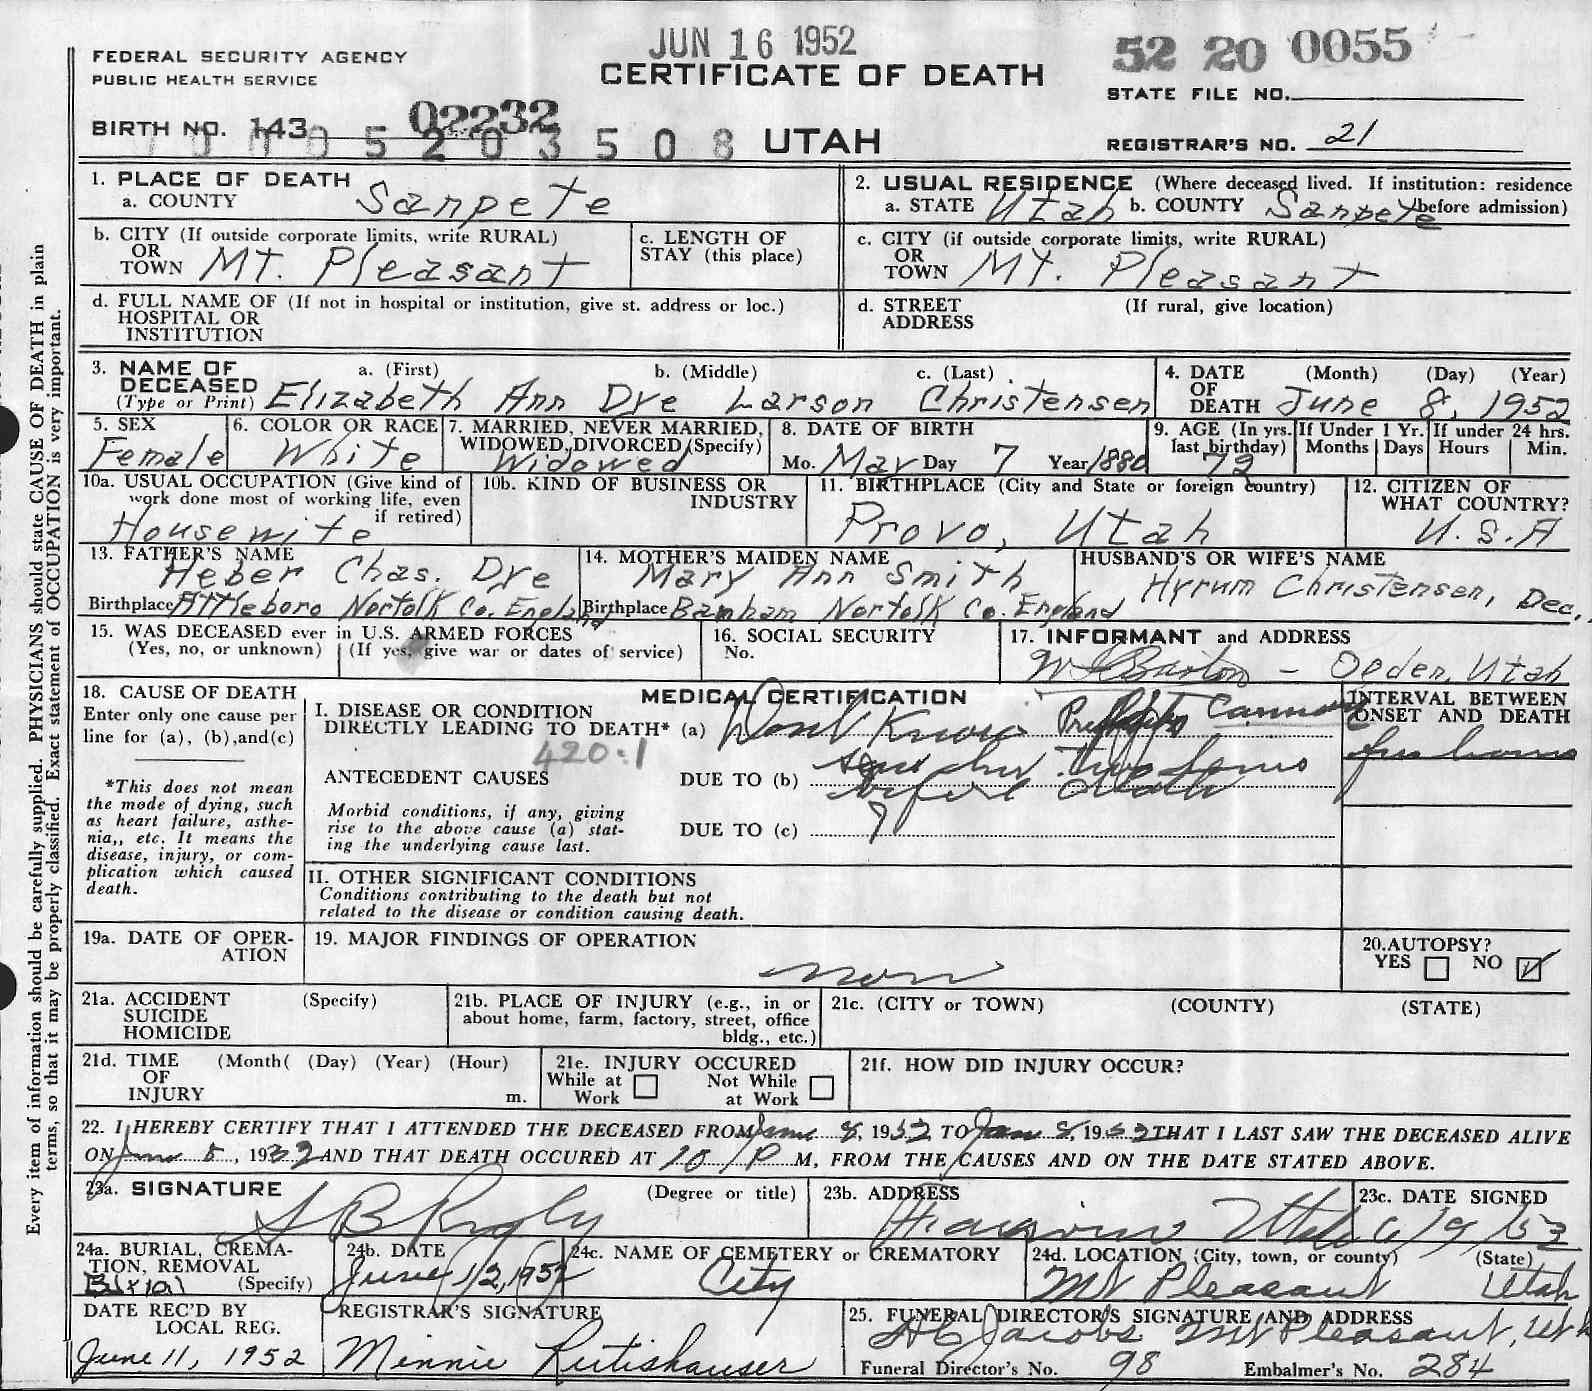 JUN 16 1952
52 20 0055
FEDERAL SECURITY AGENCY
PUBLIC HEALTH SERVICE
CERTIFICATE OF DEATH
STATE FILE NO.
BIRTH NO. 143 02232
5 2 0 3 5 0 8
UTAH
REGISTRAR'S NO. 21
1. PLACE OF DEATH
a. COUNTY Sanpete
2. USUAL RESIDENCE (Where deceased lived. If institution: residence before admission)
a. STATE Utah b. COUNTY Sanpete
b. CITY (If outside corporate limits, write RURAL)
OR
TOWN Mt. Pleasant
c. LENGTH OF
STAY (this place)
c. CITY (if outside corporate limits, write RURAL)
OR
TOWN Mt. Pleasant
d. FULL NAME OF (If not in hospital or institution, give st. address or loc.)
HOSPITAL OR
INSTITUTION
d. STREET (If rural, give location)
ADDRESS
3. NAME OF
DECEASED
(Type or Print)
a. (First) b. (Middle) c. (Last)
Elizabeth Ann Dye Larson Christensen
4. DATE (Month) (Day) (Year)
OF
DEATH June 8, 1952
5. SEX
Female
6. COLOR OR RACE
White
7. MARRIED, NEVER MARRIED,
WIDOWED, DIVORCED (Specify)
Widowed
8. DATE OF BIRTH
Mo. May Day 7 Year 1880
9. AGE (In yrs. last birthday) 72
If Under 1 Yr.
Months Days
If under 24 hrs.
Hours Min.
10a. USUAL OCCUPATION (Give kind of
work done most of working life, even
if retired)
Housewife
10b. KIND OF BUSINESS OR
INDUSTRY
11. BIRTHPLACE (City and State or foreign country)
Provo, Utah
12. CITIZEN OF
WHAT COUNTRY?
U.S.A
13. FATHER'S NAME
Heber Chas. Dye
Birthplace Attleboro Norfolk Co. England
14. MOTHER'S MAIDEN NAME
Mary Ann Smith
Birthplace Banham Norfolk Co. England
HUSBAND'S OR WIFE'S NAME
Hyrum Christensen, Dec.
15. WAS DECEASED ever in U.S. ARMED FORCES
(Yes, no, or unknown) (If yes, give war or dates of service)
16. SOCIAL SECURITY
No.
17. INFORMANT and ADDRESS
Barton – Ogden, Utah
18. CAUSE OF DEATH
Enter only one cause per
line for (a), (b),and(c)
*This does not mean
the mode of dying, such
as heart failure, asthe-
nia,, etc. It means the
disease, injury, or com-
plication which caused
death.
MEDICAL CERTIFICATION
I. DISEASE OR CONDITION
DIRECTLY LEADING TO DEATH* (a) Dont Know
420.1
ANTECEDENT CAUSES
DUE TO (b) before death
Morbid conditions, if any, giving
rise to the above cause (a) stat-
ing the underlying cause last.
DUE TO (c)
INTERVAL BETWEEN
ONSET AND DEATH
few hours
II. OTHER SIGNIFICANT CONDITIONS
Conditions contributing to the death but not
related to the disease or condition causing death.
19a. DATE OF OPER-
ATION
19. MAJOR FINDINGS OF OPERATION
20.AUTOPSY?
YES NO
21a. ACCIDENT (Specify)
SUICIDE
HOMICIDE
21b. PLACE OF INJURY (e.g., in or
about home, farm, factory, street, office
bldg., etc.)
21c. (CITY or TOWN) (COUNTY) (STATE)
21d. TIME (Month( (Day) (Year) (Hour)
OF
INJURY m.
21e. INJURY OCCURED
While at Work
Not While at Work
21f. HOW DID INJURY OCCUR?
22. I HEREBY CERTIFY THAT I ATTENDED THE DECEASED FROM June 8, 1952 TO June 8, 1952 THAT I LAST SAW THE DECEASED ALIVE
ON June 8, 1952 AND THAT DEATH OCCURED AT 10 P M, FROM THE CAUSES AND ON THE DATE STATED ABOVE.
23a. SIGNATURE (Degree or title)
23b. ADDRESS
Utah
23c. DATE SIGNED
24a. BURIAL, CREMA-
TION, REMOVAL
(Specify)
Burial
24b. DATE
June 12, 1952
24c. NAME OF CEMETERY or CREMATORY
City
24d. LOCATION (City, town, or county) (State)
Mt Pleasant Utah
DATE REC'D BY
LOCAL REG.
June 11, 1952
REGISTRAR'S SIGNATURE
Minnie Rutishauser
25. FUNERAL DIRECTOR'S SIGNATURE AND ADDRESS
Jacobs Mt Pleasant, Utah
Funeral Director's No. 98 Embalmer's No. 284
Every item of information should be carefully supplied. PHYSICIANS should state CAUSE OF DEATH in plain
terms, so that it may be properly classified. Exact statement of OCCUPATION is very important.